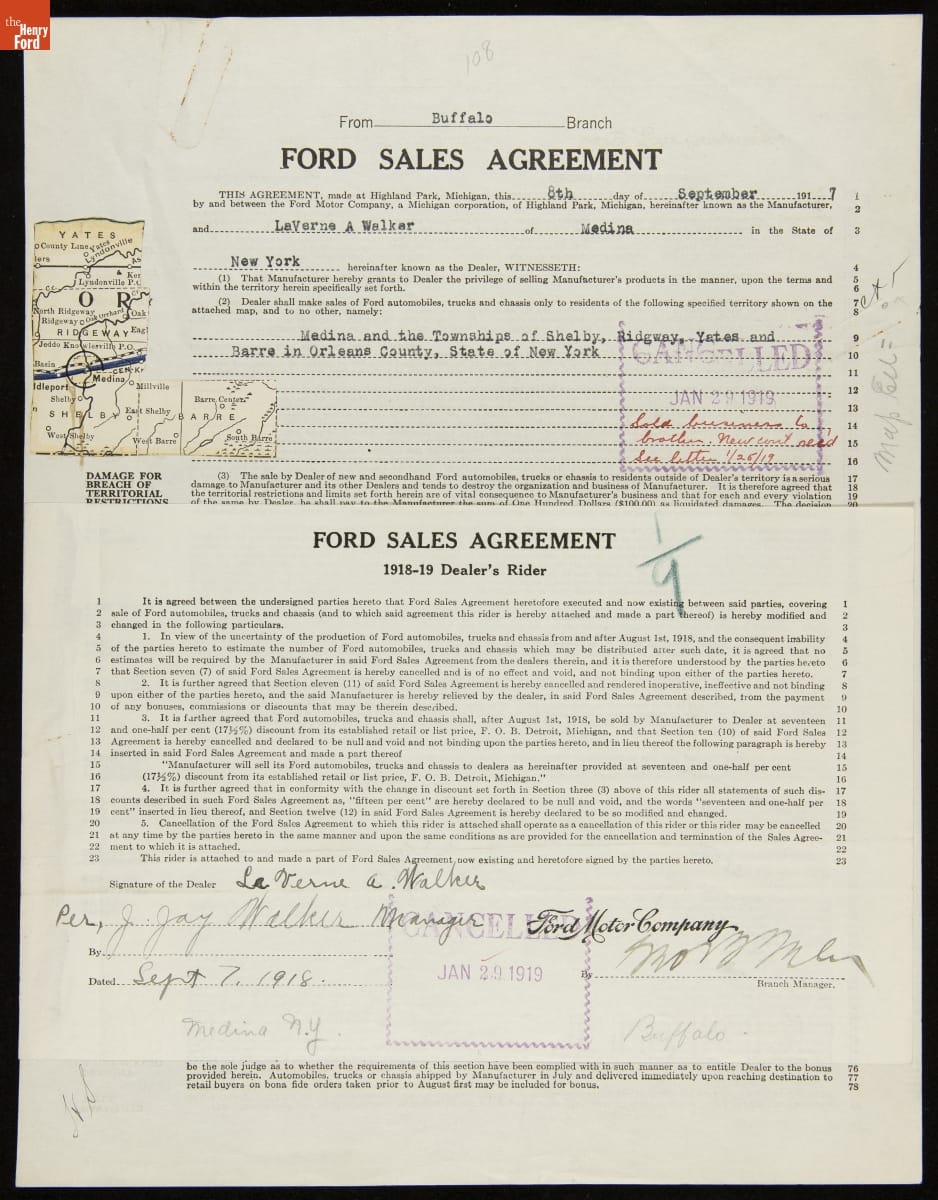 the
Henry
Ford
108
From Buffalo Branch
FORD SALES AGREEMENT
THIS AGREEMENT, made at Highland Park, Michigan, this 8th day of September 191 7 1
by and between the Ford Motor Company, a Michigan corporation, of Highland Park, Michigan, hereinafter known as the Manufacturer, 2
and LaVerne A Walker of Medina in the State of 3
New York hereinafter known as the Dealer, WITNESSETH: 4
(1) That Manufacturer hereby grants to Dealer the privilege of selling Manufacturer's products in the manner, upon the terms and 5
within the territory herein specifically set forth. 6
(2) Dealer shall make sales of Ford automobiles, trucks and chassis only to residents of the following specified territory shown on the 7
attached map, and to no other, namely: 8
Medina and the Townships of Shelby, Ridgway, Yates and 9
Barre in Orleans County, State of New York 10
11
12
13
14
15
16
CANCELLED
JAN 29 1919
Sold business to
brother. New cont recd
See letter 1/25/19
YATES
County Line
Yates
Lyndonville
lers
Ker
Lyndonville P.O.
OR
North Ridgeway
Ridgeway
Oak Orchard
Oak
RIDGEWAY
Eag
Jeddo
Knowlesville P.O.
Basin
CENT
ddleport
Medina
Millville
Shelby
East Shelby
SHELBY
West Shelby
West Barre
BARRE
Barre Center
South Barre
DAMAGE FOR
BREACH OF
TERRITORIAL
RESTRICTIONS
(3) The sale by Dealer of new and secondhand Ford automobiles, trucks or chassis to residents outside of Dealer's territory is a serious 17
damage to Manufacturer and its other Dealers and tends to destroy the organization and business of Manufacturer. It is therefore agreed that 18
the territorial restrictions and limits set forth herein are of vital consequence to Manufacturer's business and that for each and every violation 19
of the same by Dealer, he shall pay to the Manufacturer the sum of One Hundred Dollars ($100.00) as liquidated damages. The decision 20
FORD SALES AGREEMENT
1918-19 Dealer's Rider
1 It is agreed between the undersigned parties hereto that Ford Sales Agreement heretofore executed and now existing between said parties, covering 1
2 sale of Ford automobiles, trucks and chassis (and to which said agreement this rider is hereby attached and made a part thereof) is hereby modified and 2
3 changed in the following particulars. 3
4 1. In view of the uncertainty of the production of Ford automobiles, trucks and chassis from and after August 1st, 1918, and the consequent inability 4
5 of the parties hereto to estimate the number of Ford automobiles, trucks and chassis which may be distributed after such date, it is agreed that no 5
6 estimates will be required by the Manufacturer in said Ford Sales Agreement from the dealers therein, and it is therefore understood by the parties hereto 6
7 that Section seven (7) of said Ford Sales Agreement is hereby cancelled and is of no effect and void, and not binding upon either of the parties hereto. 7
8 2. It is further agreed that Section eleven (11) of said Ford Sales Agreement is hereby cancelled and rendered inoperative, ineffective and not binding 8
9 upon either of the parties hereto, and the said Manufacturer is hereby relieved by the dealer, in said Ford Sales Agreement described, from the payment 9
10 of any bonuses, commissions or discounts that may be therein described. 10
11 3. It is further agreed that Ford automobiles, trucks and chassis shall, after August 1st, 1918, be sold by Manufacturer to Dealer at seventeen 11
12 and one-half per cent (17½%) discount from its established retail or list price, F. O. B. Detroit, Michigan, and that Section ten (10) of said Ford Sales 12
13 Agreement is hereby cancelled and declared to be null and void and not binding upon the parties hereto, and in lieu thereof the following paragraph is hereby 13
14 inserted in said Ford Sales Agreement and made a part thereof 14
15 "Manufacturer will sell its Ford automobiles, trucks and chassis to dealers as hereinafter provided at seventeen and one-half per cent 15
16 (17½%) discount from its established retail or list price, F. O. B. Detroit, Michigan." 16
17 4. It is further agreed that in conformity with the change in discount set forth in Section three (3) above of this rider all statements of such dis- 17
18 counts described in such Ford Sales Agreement as, "fifteen per cent" are hereby declared to be null and void, and the words "seventeen and one-half per 18
19 cent" inserted in lieu thereof, and Section twelve (12) in said Ford Sales Agreement is hereby declared to be so modified and changed. 19
20 5. Cancellation of the Ford Sales Agreement to which this rider is attached shall operate as a cancellation of this rider or this rider may be cancelled 20
21 at any time by the parties hereto in the same manner and upon the same conditions as are provided for the cancellation and termination of the Sales Agree- 21
22 ment to which it is attached. 22
23 This rider is attached to and made a part of Ford Sales Agreement now existing and heretofore signed by the parties hereto. 23
Signature of the Dealer La Verne A. Walker
Per, J. Jay Walker Manager
CANCELLED
Ford Motor Company
By
JAN 29 1919
By
Dated Sept 7, 1918.
Branch Manager.
Medina N.Y.
Buffalo
be the sole judge as to whether the requirements of this section have been complied with in such manner as to entitle Dealer to the bonus 76
provided herein. Automobiles, trucks or chassis shipped by Manufacturer in July and delivered immediately upon reaching destination to 77
retail buyers on bona fide orders taken prior to August first may be included for bonus. 78